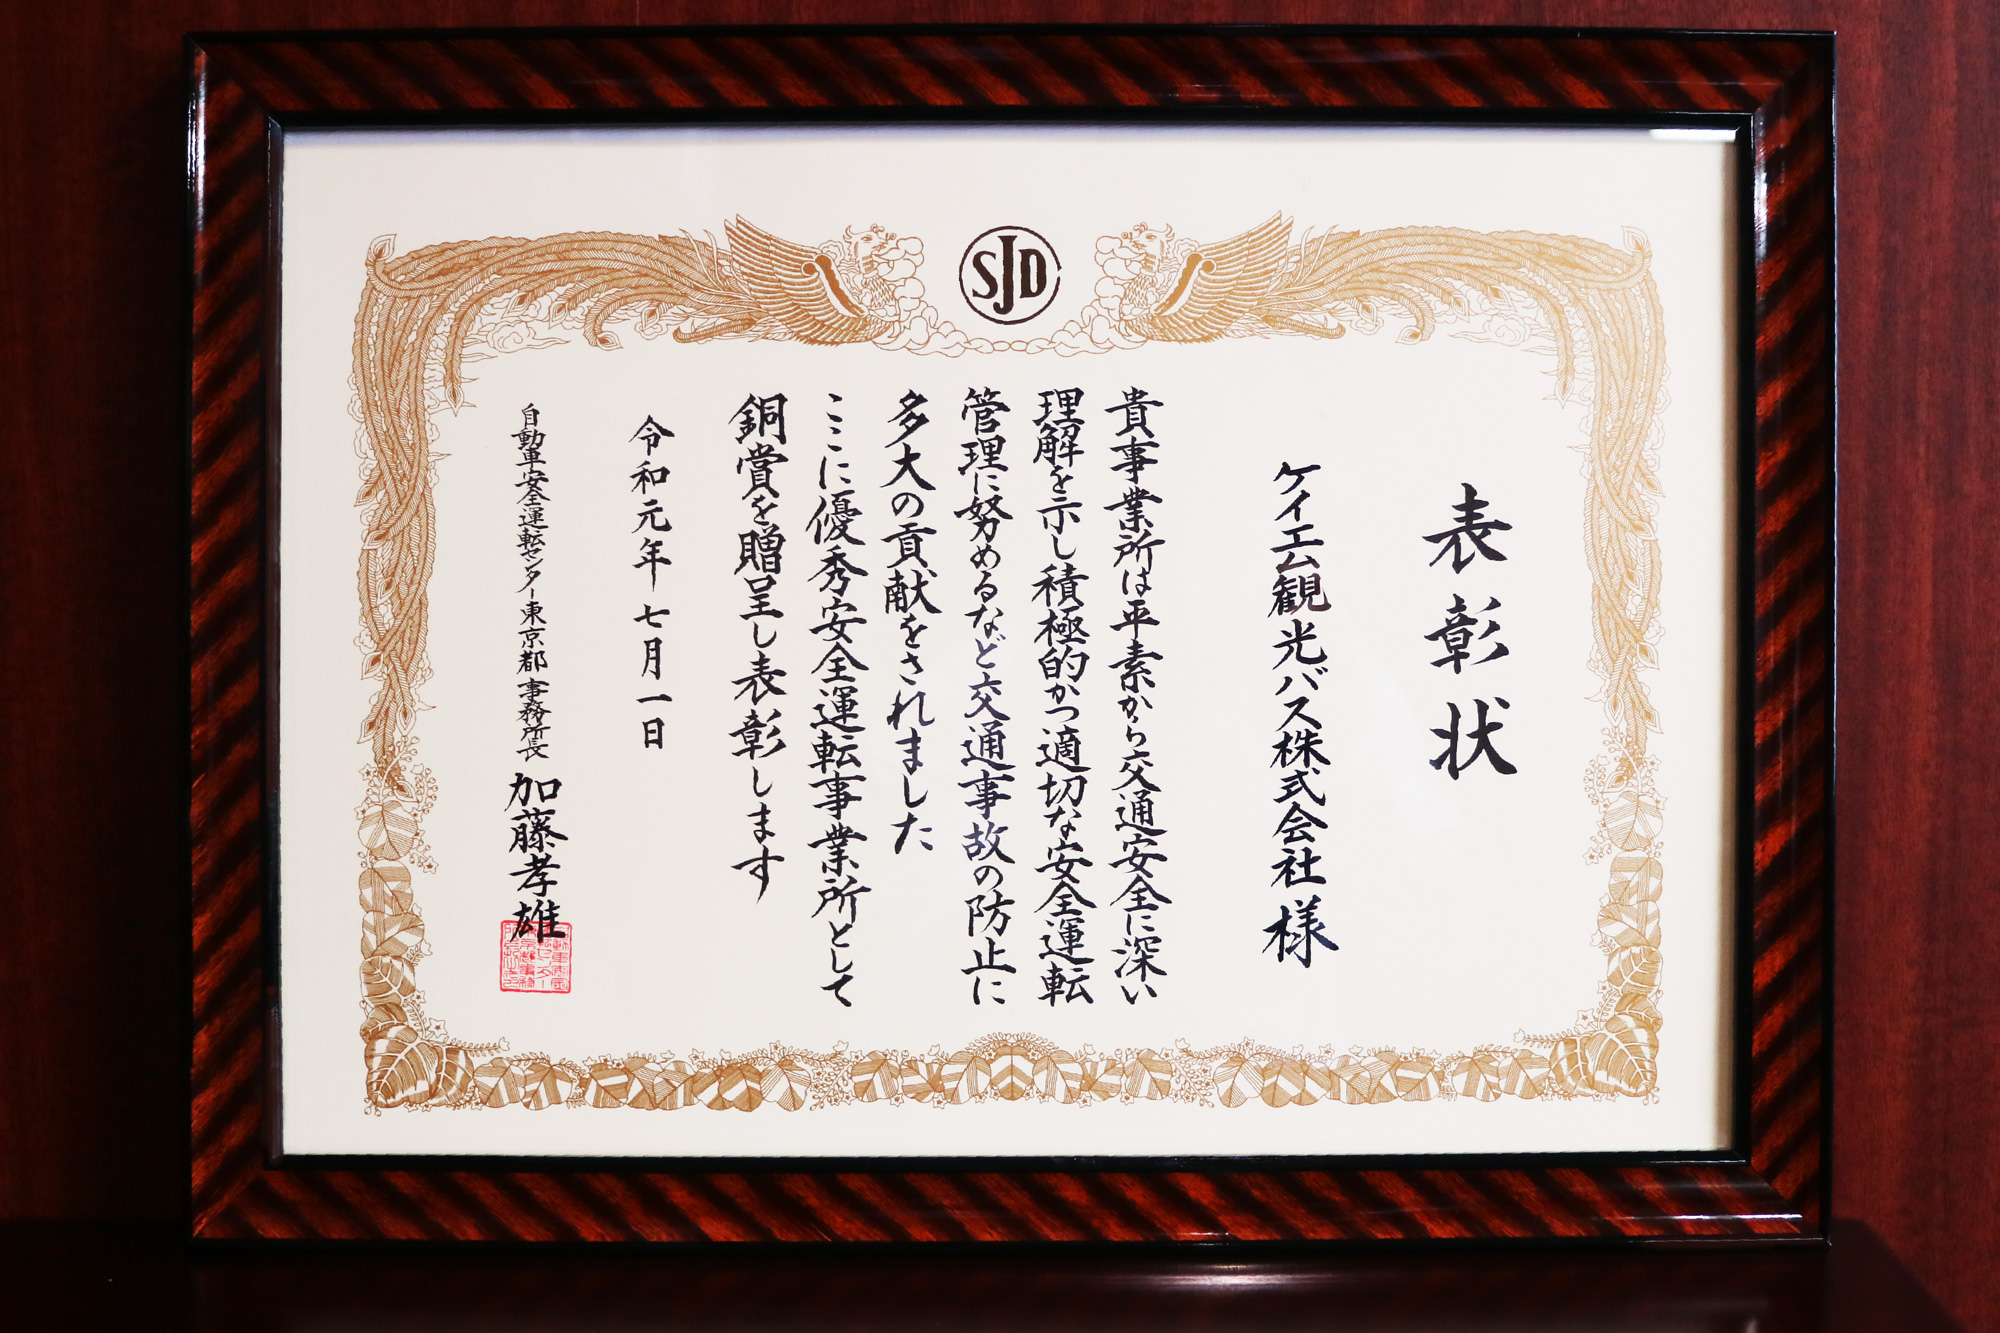 SJD
表彰状
ケイエム観光バス株式会社様
貴事業所は平素から交通安全に深い
理解を示し積極的かつ適切な安全運転
管理に努めるなど交通事故の防止に
多大の貢献をされました
ここに優秀安全運転事業所として
銅賞を贈呈し表彰します
令和元年七月一日
自動車安全運転センター東京都事務所長 加藤孝雄